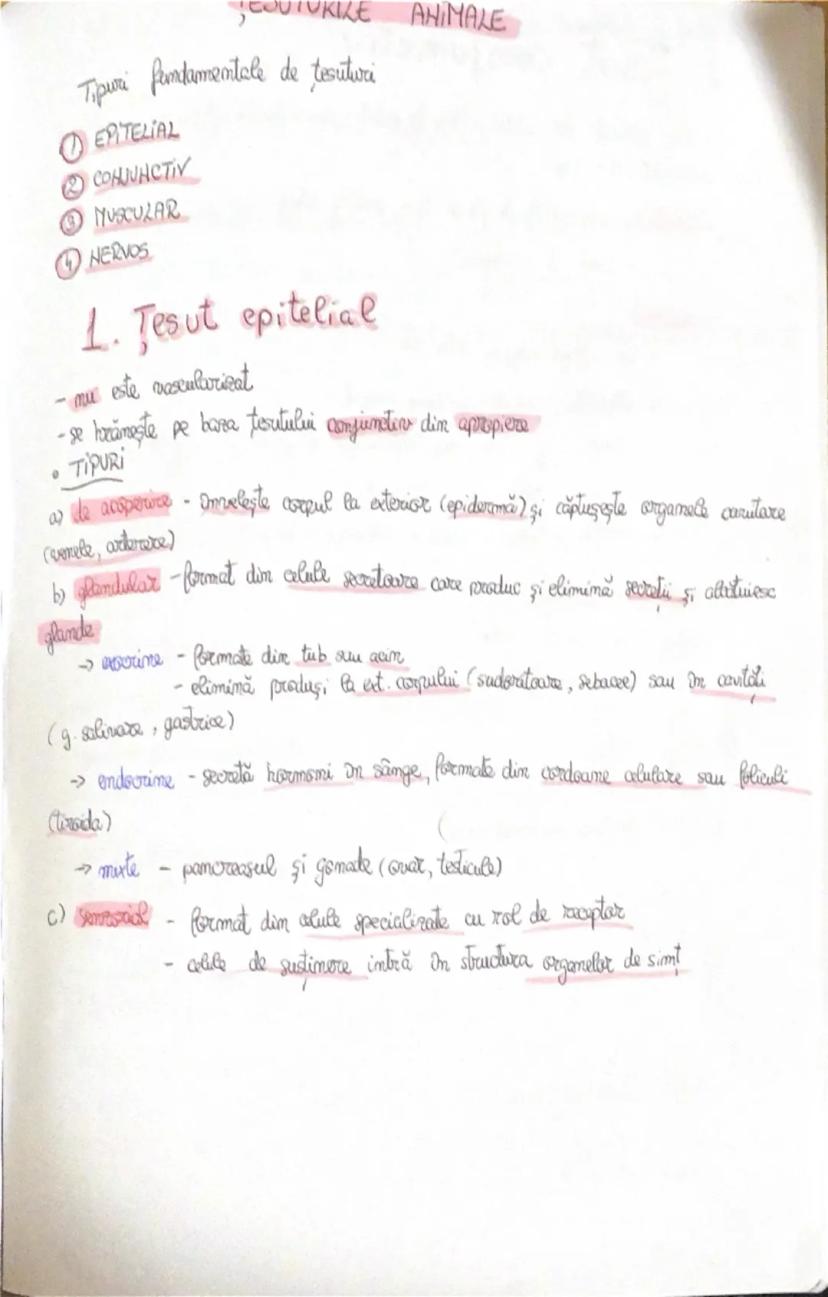 ȚESUTURILE ANIMALE
Tipuri fundamentale de țesuturi
① EPITELIAL
② CONJUNCTIV
③ MUSCULAR
④ NERVOS
1. Țesut epitelial
- nu este vascularizat
- se hrănește pe baza țesutului conjunctiv din apropiere
• TIPURI
a) de acoperire - învelește corpul la exterior (epidermă) și căptușește organele cavitare
(venele, arterere)
b) glandular - format din celule secretoare care produc și elimină secreții și alcătuiesc
glande
→ exocrine - formate din tub sau acin
- elimină produși la ext. corpului (sudoritoare, sebacee) sau în cavități
(g. salivare, gastrice)
→ endocrine - secretă hormoni în sânge, formate din cordoane celulare sau foliculi
(tiroida)
→ mixte - pancreasul și gonade (ovar, testicule)
c) senzorial - format din celule specializate cu rol de receptor
- celule de susținere intră în structura organelor de simț